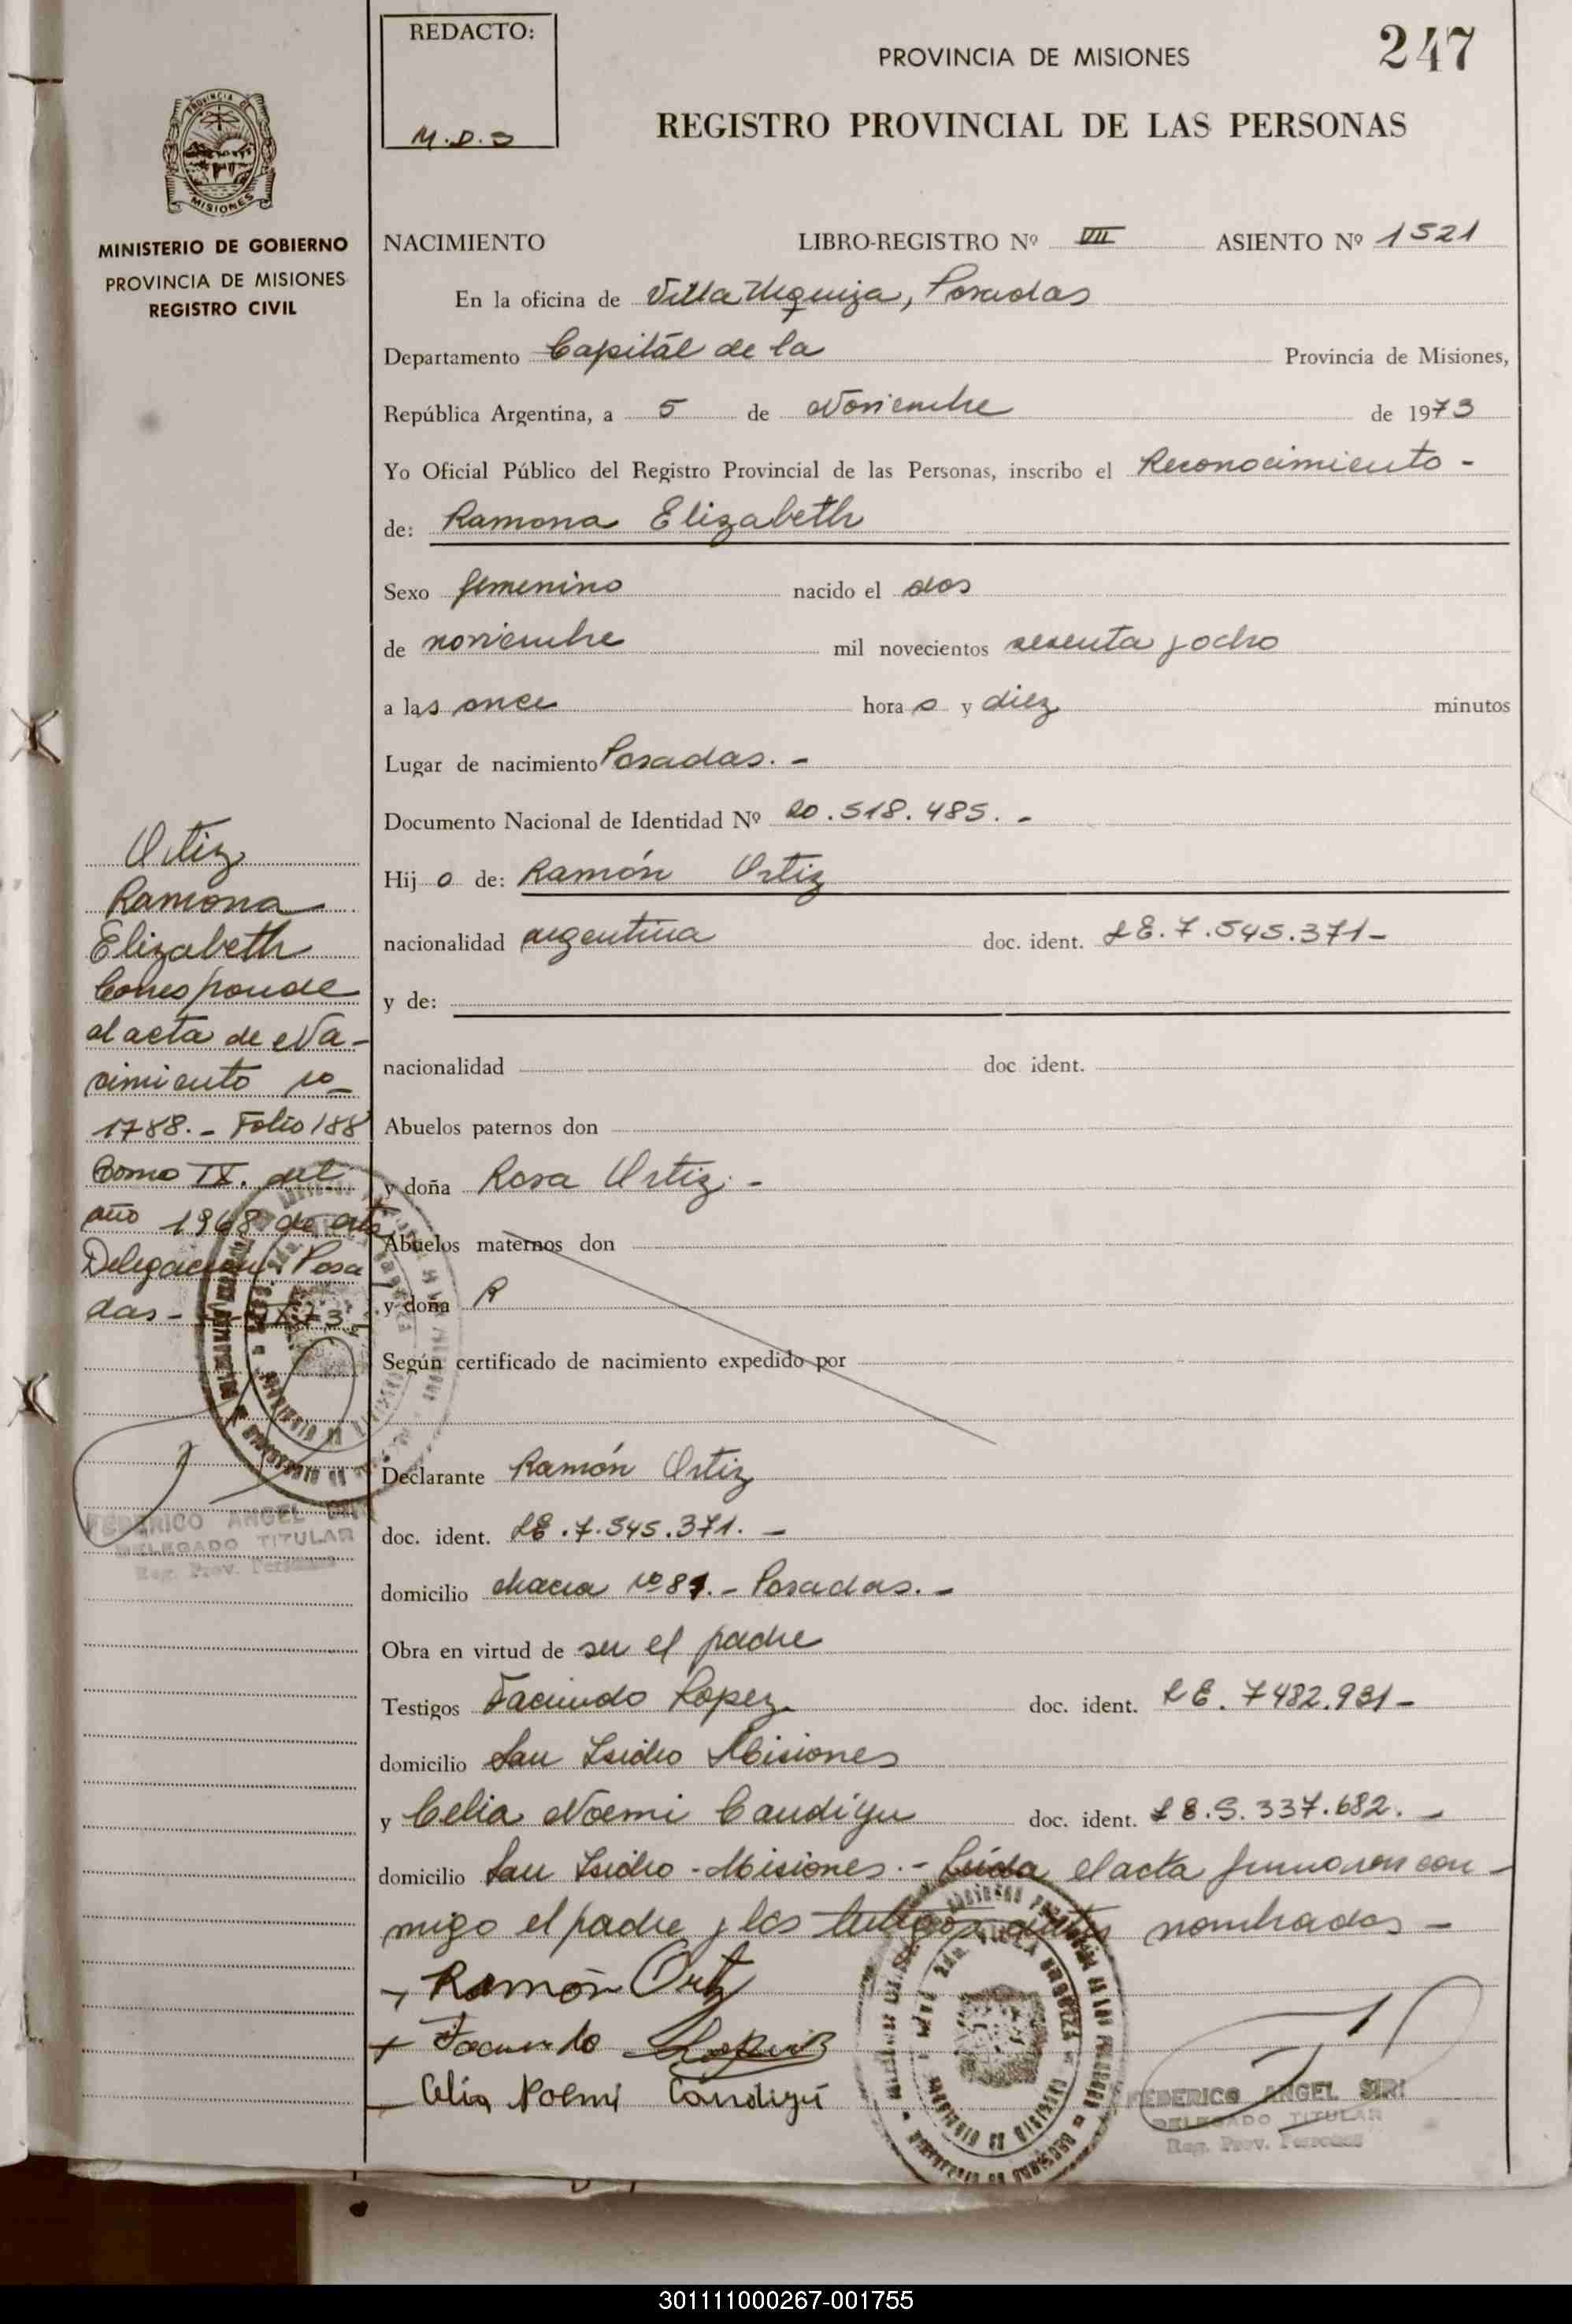 REDACTO:
M.D.S
PROVINCIA DE MISIONES
247
REGISTRO PROVINCIAL DE LAS PERSONAS
PROVINCIA DE
MISIONES
MINISTERIO DE GOBIERNO
PROVINCIA DE MISIONES
REGISTRO CIVIL
NACIMIENTO LIBRO-REGISTRO Nº VII ASIENTO Nº 1521
En la oficina de Villa Urquiza, Posadas
Departamento Capitál de la Provincia de Misiones,
República Argentina, a 5 de Noviembre de 1973
Yo Oficial Público del Registro Provincial de las Personas, inscribo el Reconocimiento -
de: Ramona Elizabeth
Sexo femenino nacido el dos
de noviembre mil novecientos sesenta y ocho
a las once hora s y diez minutos
Lugar de nacimiento Posadas. -
Documento Nacional de Identidad Nº 20.518.485. -
Hij a de: Ramón Ortiz
nacionalidad argentina doc. ident. LE. 7.545.371-
y de:
nacionalidad doc ident.
Abuelos paternos don
y doña Rosa Ortiz. -
Abuelos maternos don
y doña R
Según certificado de nacimiento expedido por
Declarante Ramón Ortiz
doc. ident. LE. 7.545.371. -
domicilio chacra Nº 81. - Posadas. -
Obra en virtud de ser el padre
Testigos Facundo Lopez doc. ident. LE. 7482.931-
domicilio San Isidro Misiones
y Celia Noemi Candiyu doc. ident. L E.5.337.682. -
domicilio San Isidro - Misiones. - Leída el acta firmaron con-
migo el padre y los testigos antes nombrados -
Ramón Ortiz
Facundo
Celia Noemi Candiyú
Ortiz
Ramona
Elizabeth
Corresponde
al acta de Na-
cimiento Nº
1788. - Folio 188
Tomo IX. del
año 1968 de esta
Delegación Posa
das -
FEDERICO ANGEL SIRI
DELEGADO TITULAR
Reg. Prov. Personas
FEDERICO ANGEL SIRI
DELEGADO TITULAR
Reg. Prov. Personas
301111000267-001755